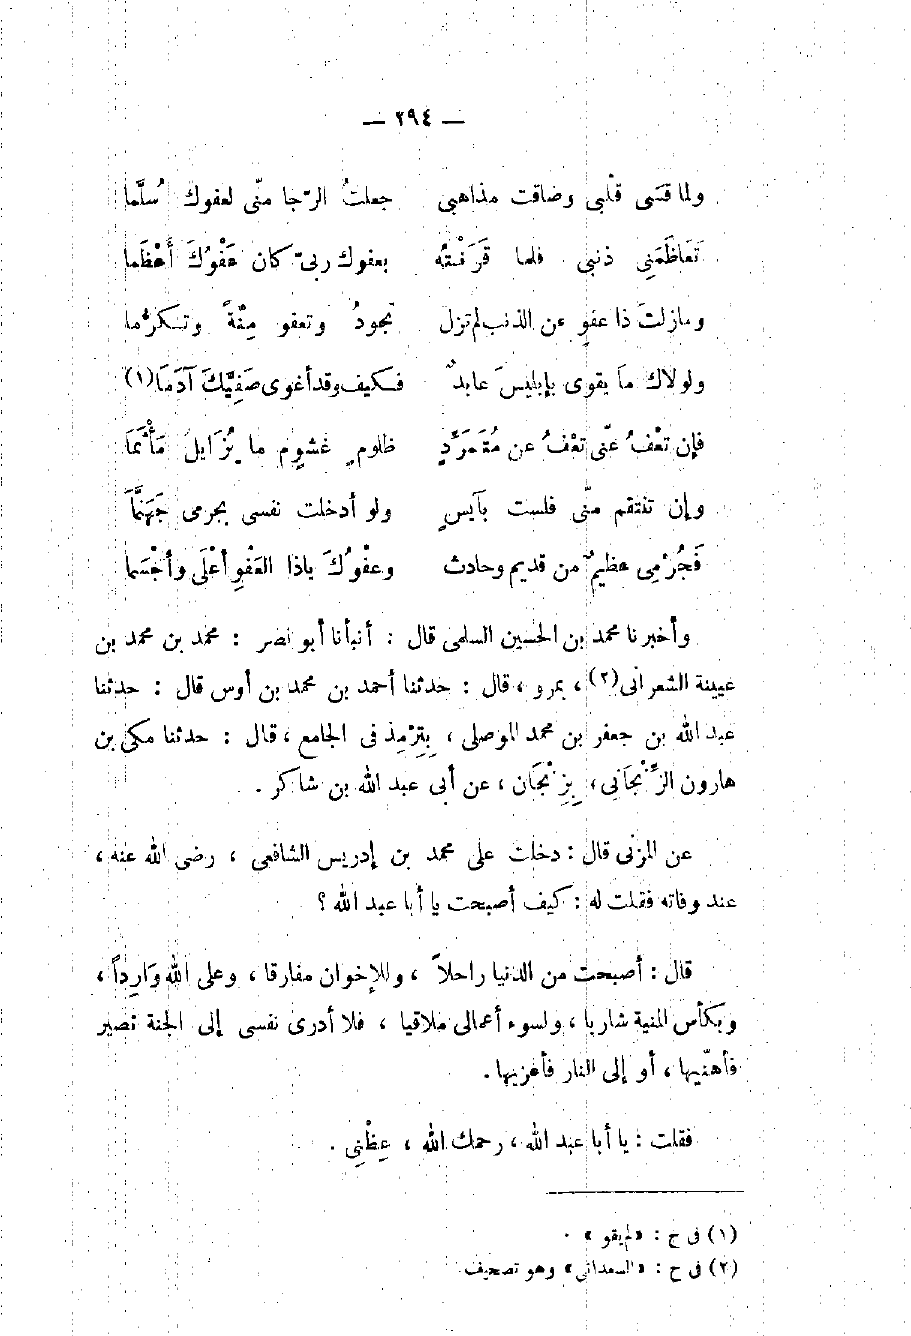 — ٢٩٤ —
ولما قسَى قلْبي وضاقت مذاهبي جعلتُ الرّجا منّى لعفوك سُلَّما
تَعَاظَمَنِى ذنبي فلما قَرَنْتُه بعفوك ربىّ كان عَفْوُكَ أَعْظَما
ومازلتَ ذا عفوٍ عن الذنب لم تزل تجودُ وتعفو مِنّةً وتكرُّما
ولولاك مَا يقوى بإبليسَ عابدٌ فكيف وقد أغوى صَفِيَّكَ آدَمَا(١)
فإن تعْفُ عنّى تعْفُ عن مُتَمَرِّدٍ ظلومٍ غشومٍ ما يُزَايلَ مَأْثَمَا
وإن تنتقم منّى فلست بآيسٍ ولو أدخلت نفسى بجرمى جَهَنَّمَا
فَجُرْمِى عظيمٌ من قديم وحادث وعفْوُكَ ياذا العَفْوِ أعْلَى وأجْسَما
وأخبرنا محمد بن الحسين السلمى قال : أنبأنا أبو نصر : محمد بن محمد بن
عيينة الشعرانى(٢) ، بمرو ، قال : حدثنا أحمد بن محمد بن أوس قال : حدثنا
عبد الله بن جعفر بن محمد الموصلى ، بِتِرْمِذ فى الجامع ، قال : حدثنا مكى بن
هارون الزَّنْجَانِي ، بِزِنْجَان ، عن أبى عبد الله بن شاكر .
عن المزنى قال : دخلت على محمد بن إدريس الشافعى ، رضى الله عنه ،
عند وفاته فقلت له : كيف أصبحت يا أبا عبد الله ؟
قال : أصبحت من الدنيا راحلاً ، وللإخوان مفارقا ، وعلى الله وَارِداً ،
وبكأس المنية شاربا ، ولسوء أعمالى ملاقيا ، فلا أدرى نفسى إلى الجنة تصير
فأهنّيها ، أو إلى النار فأعزيها .
فقلت : يا أبا عبد الله ، رحمك الله ، عِظْنِى .
(١) فى ح : «لم يقو» .
(٢) فى ح : «السعدانى» وهو تصحيف